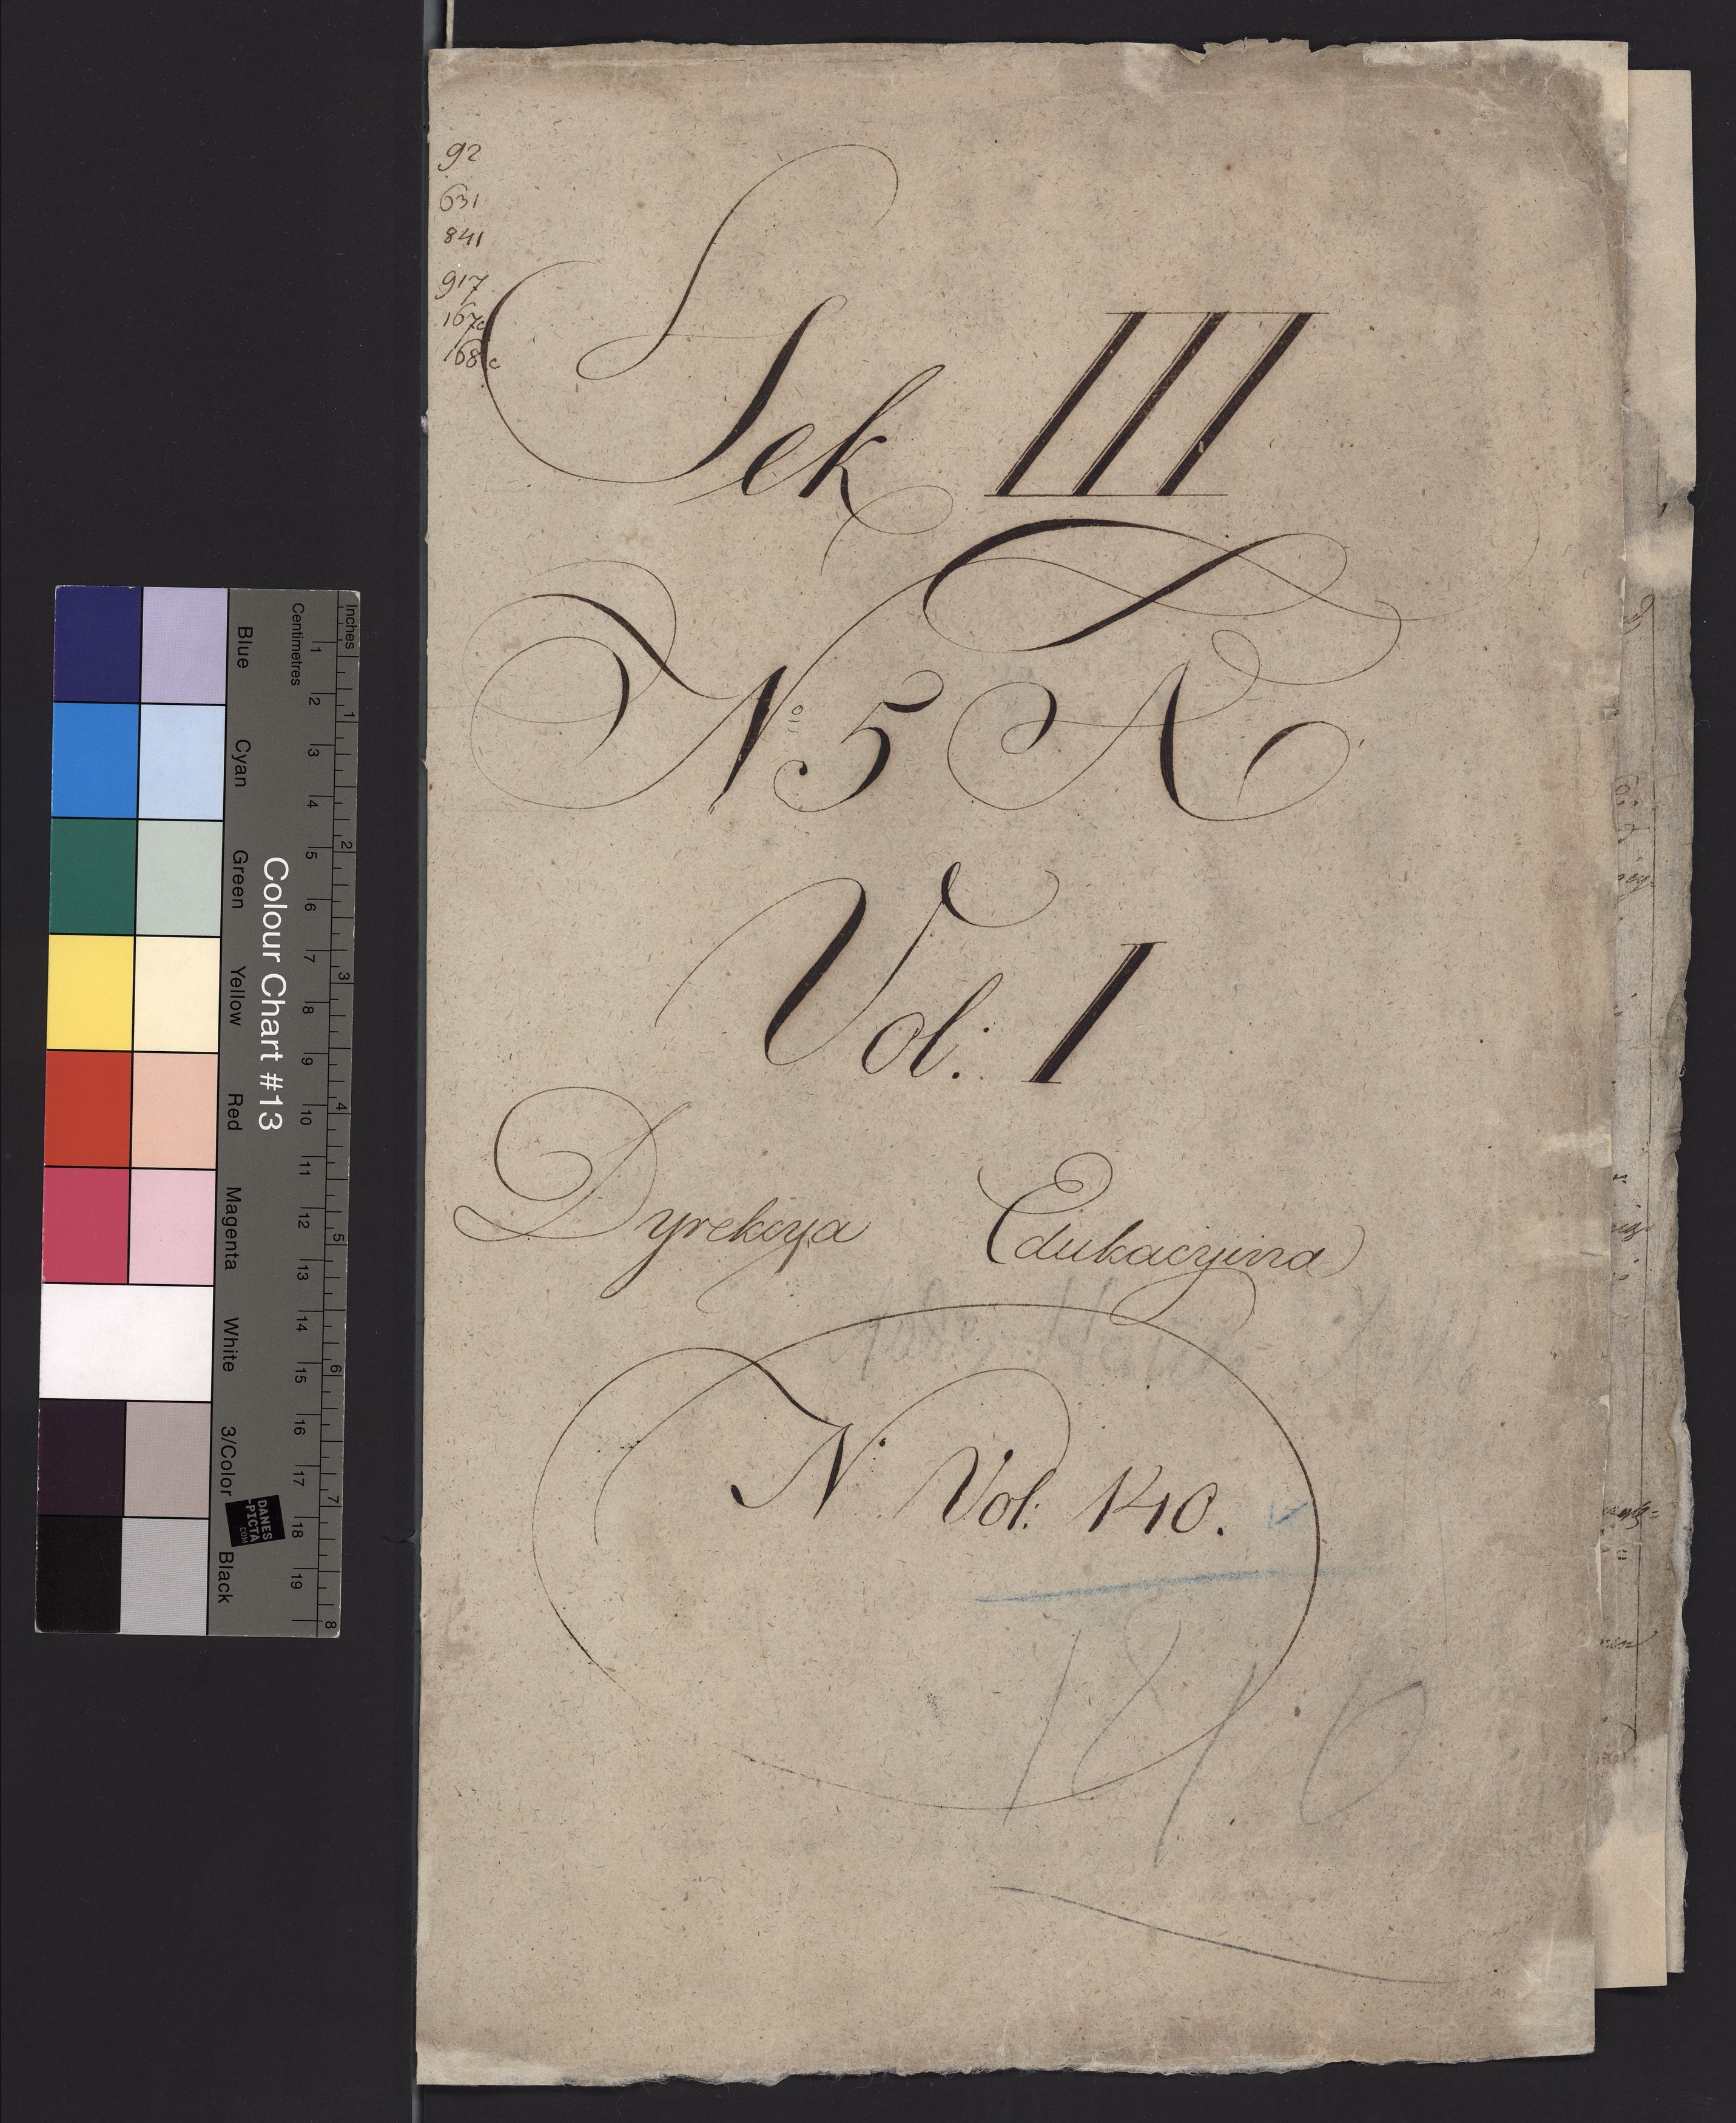 92
631
841
917
167c
168c
Sek III
Nº 5 A
Vol: I
Dyrekcya Edukacyina
N Vol: 140.
1810
Colour Chart #13
Blue
Cyan
Green
Yellow
Red
Magenta
White
3/Color
Black
Inches
1 2 3 4 5 6 7 8
Centimetres
1 2 3 4 5 6 7 8 9 10 11 12 13 14 15 16 17 18 19
DANES
-PICTA
.COM